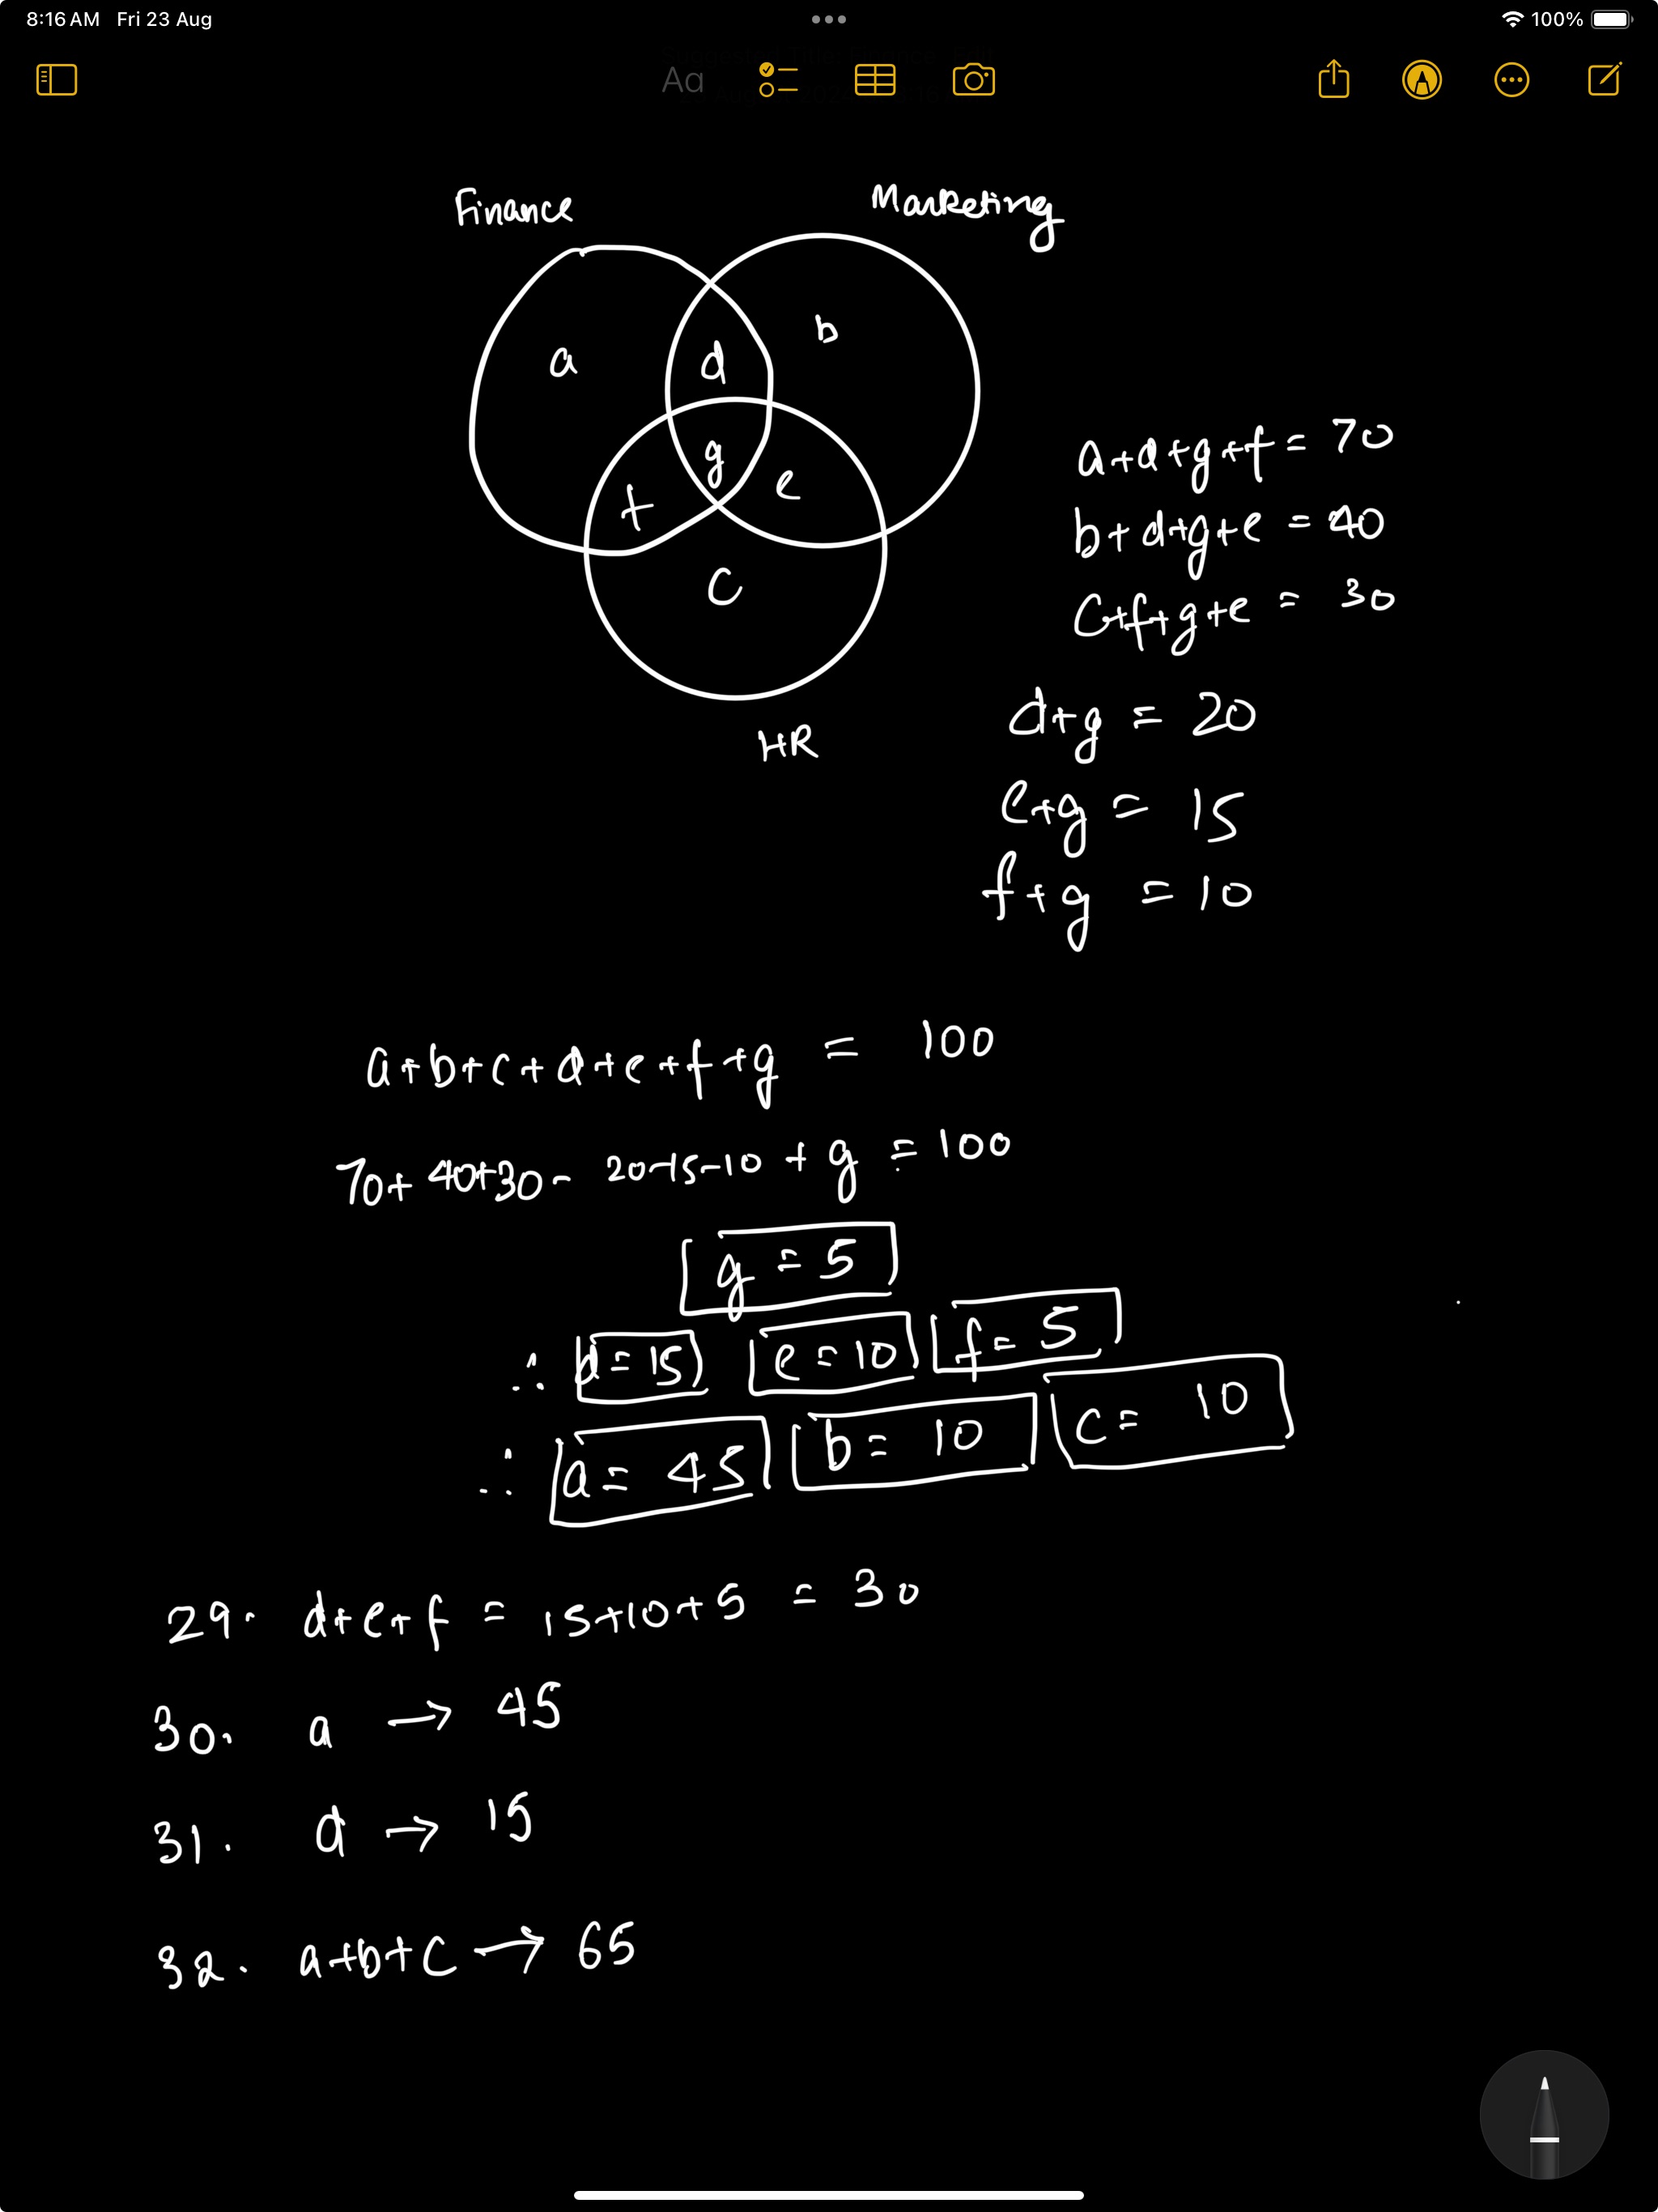 8:16 AM Fri 23 Aug
100%
Aa
Finance
Marketing
a
b
d
g
e
f
c
HR
a+d+g+f = 70
b+d+g+e = 40
c+f+g+e = 30
d+g = 20
e+g = 15
f+g = 10
a+b+c+d+e+f+g = 100
70+40+30-20-15-10+g = 100
g = 5
∴ d=15 e=10 f=5
∴ a=45 b=10 c=10
29. d+e+f = 15+10+5 = 30
30. a → 45
31. d → 15
32. a+b+c → 65